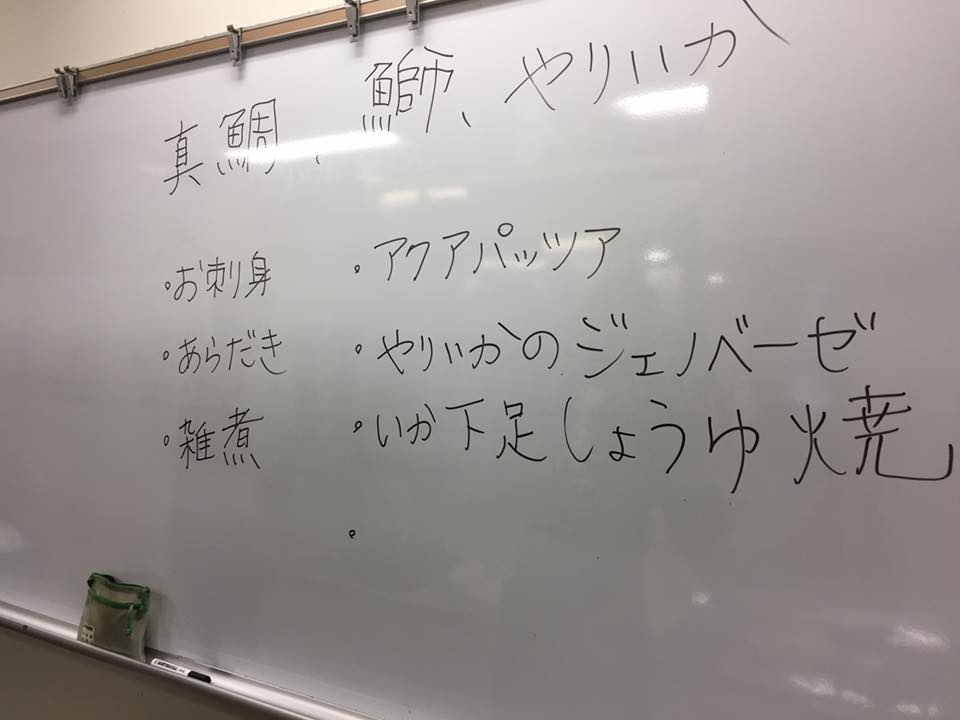 真鯛、鰤、やりいか
・お刺身
・あらだき
・雑煮
・アクアパッツア
・やりいかのジェノベーゼ
・いか下足しょうゆ焼
・